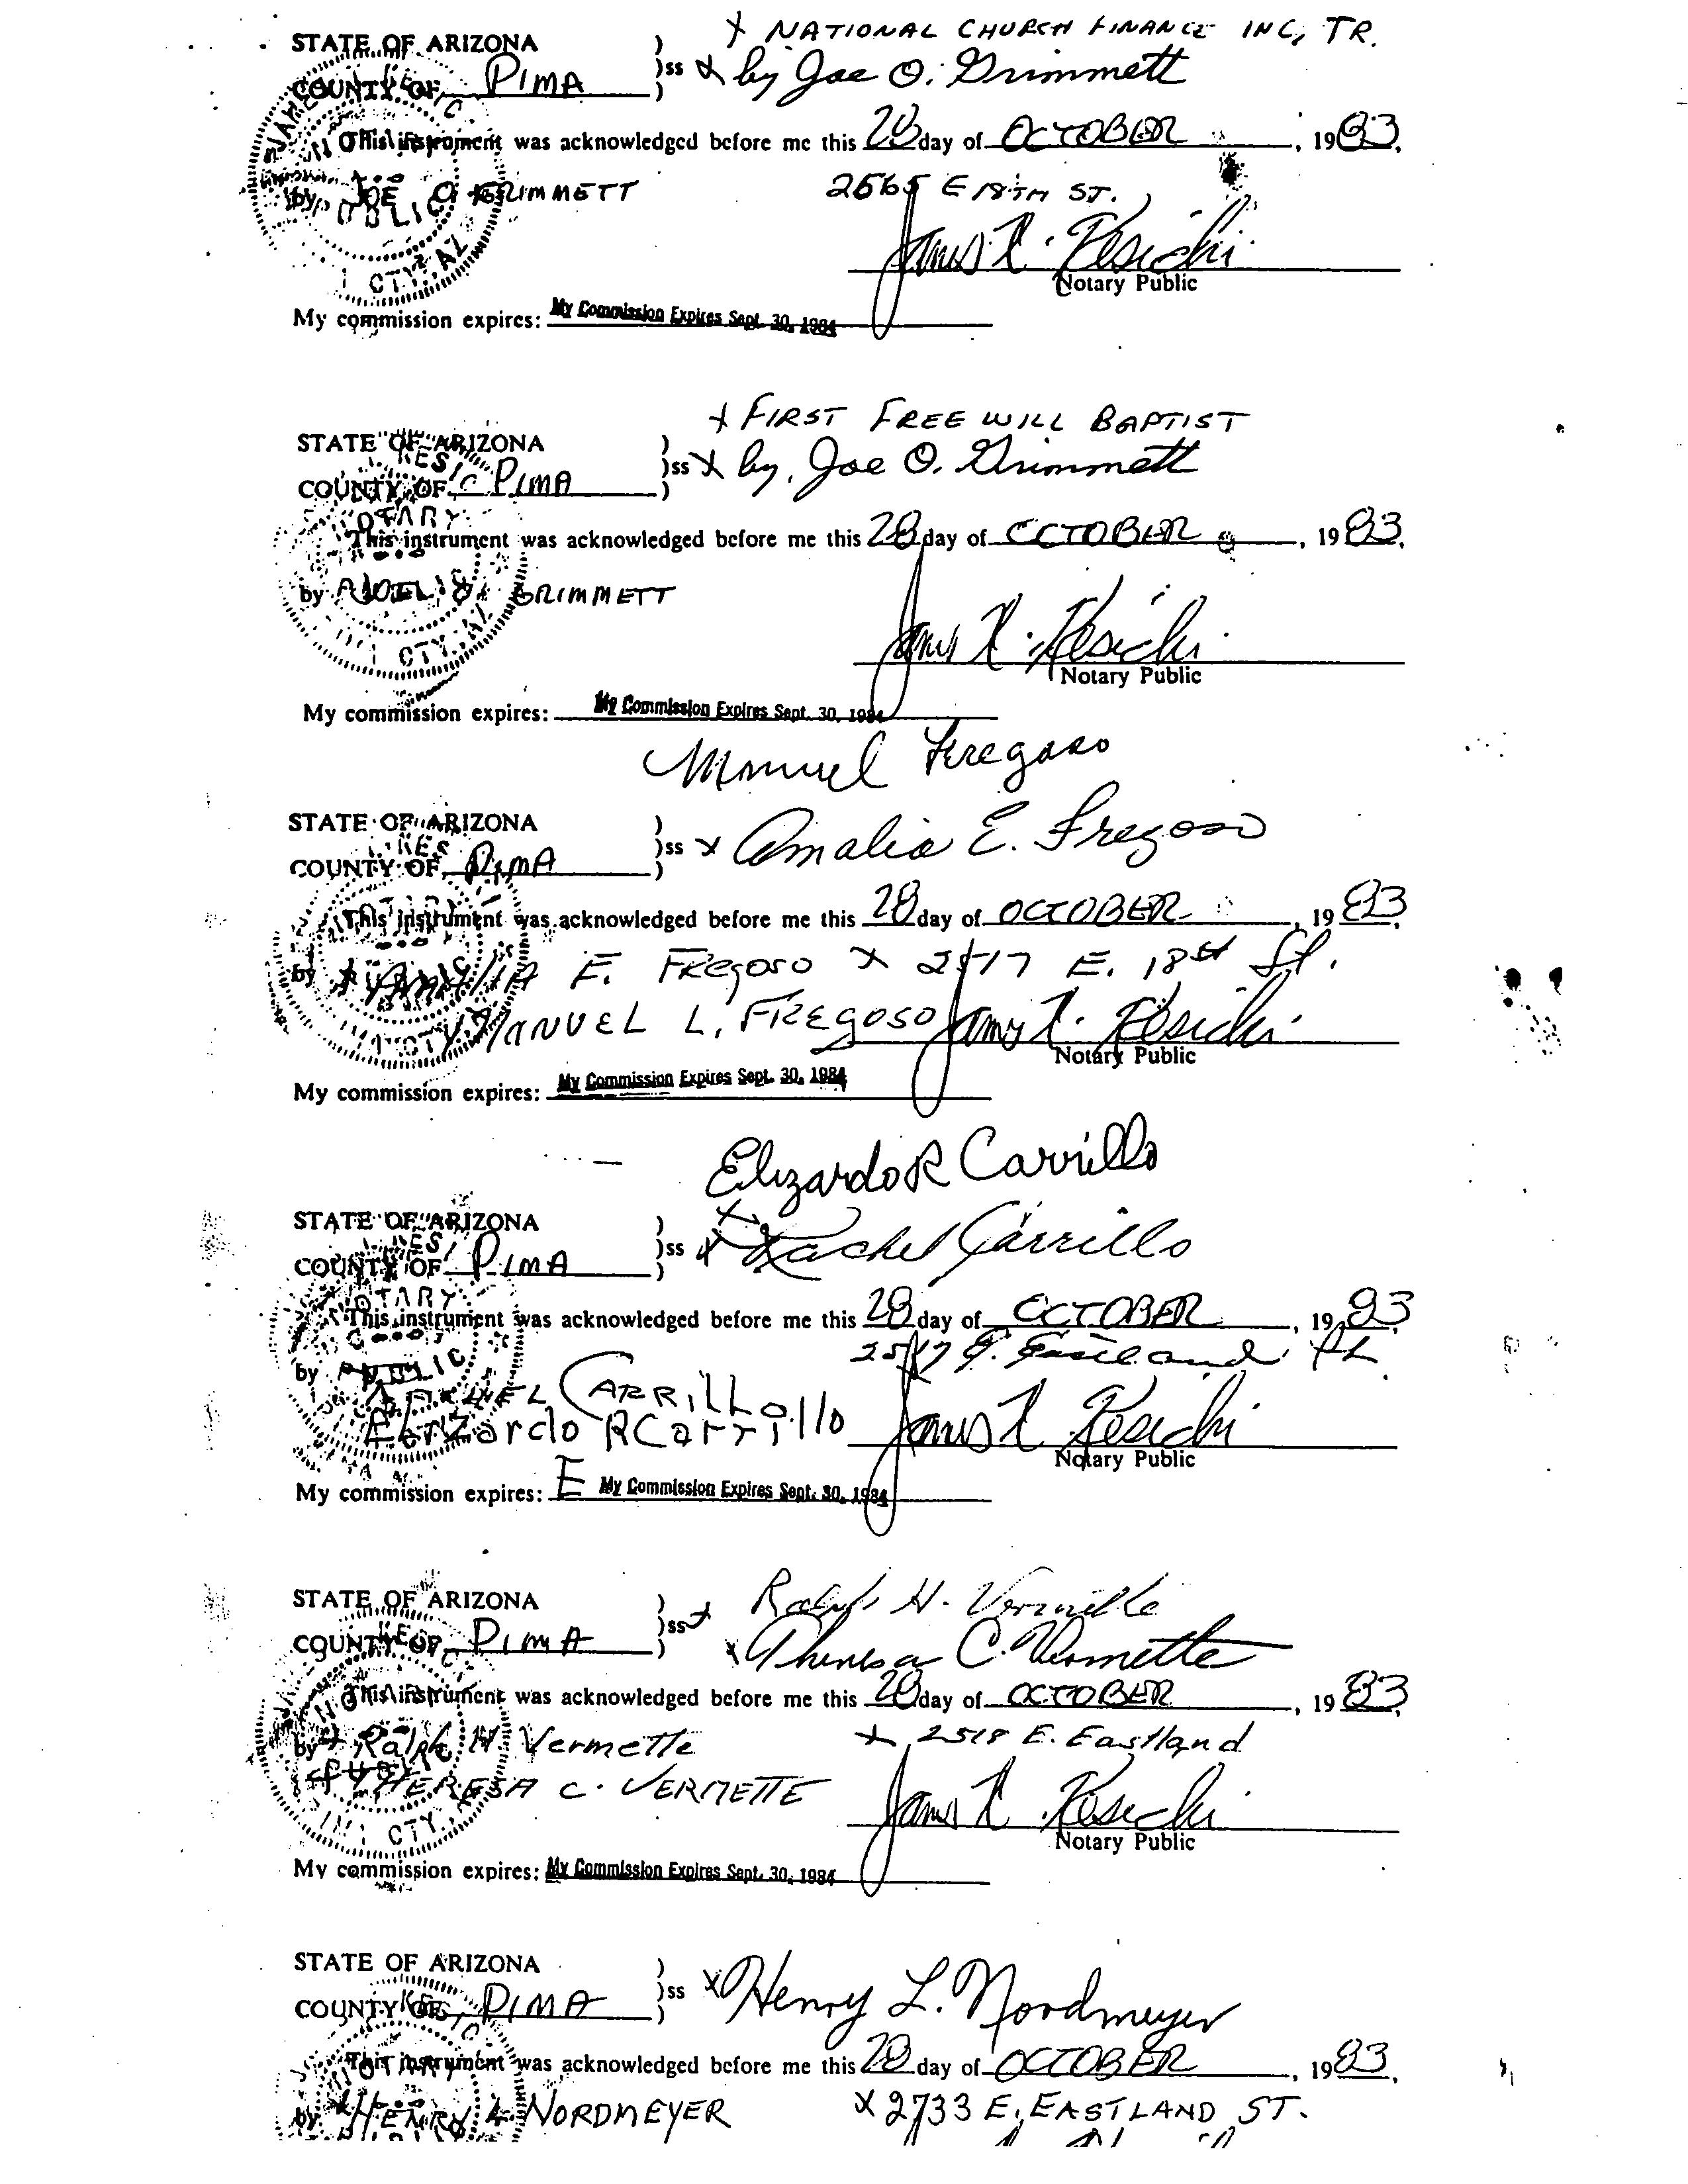 x NATIONAL CHURCH FINANCE INC, TR.
STATE OF ARIZONA )
)ss x by Joe O. Grimmett
COUNTY OF PIMA )
This instrument was acknowledged before me this 28 day of OCTOBER, 1983.
by JOE O. GRIMMETT 2565 E 18TH ST.
Notary Public
My commission expires: My Commission Expires Sept. 30, 1984
x FIRST FREE WILL BAPTIST
STATE OF ARIZONA )
)ss x by, Joe O. Grimmett
COUNTY OF PIMA )
This instrument was acknowledged before me this 28 day of OCTOBER, 1983.
by JOE O. GRIMMETT
Notary Public
My commission expires: My Commission Expires Sept. 30, 1984
Manuel Fregoso
STATE OF ARIZONA )
)ss x Amalia E. Fregoso
COUNTY OF PIMA )
This instrument was acknowledged before me this 28 day of OCTOBER, 1983
by x AMALIA E. FREGOSO x 2517 E. 18st St.
MANUEL L. FREGOSO
Notary Public
My commission expires: My Commission Expires Sept. 30, 1984
Elizardo R Carrillo
STATE OF ARIZONA )
)ss x Rachel Carrillo
COUNTY OF PIMA )
This instrument was acknowledged before me this 28 day of OCTOBER, 1983
by
RACHEL CARRILLO
Elizardo R Carrillo
Notary Public
My commission expires: E My Commission Expires Sept. 30, 1984
STATE OF ARIZONA ) Ralph H. Vermette
)ss x
COUNTY OF PIMA ) x Theresa C. Vermette
This instrument was acknowledged before me this 28 day of OCTOBER, 1983.
by x Ralph H Vermette x 2518 E. Eastland
x THERESA C. VERMETTE
Notary Public
My commission expires: My Commission Expires Sept. 30, 1984
STATE OF ARIZONA )
)ss x Henry L. Nordmeyer
COUNTY OF PIMA )
This instrument was acknowledged before me this 28 day of OCTOBER, 1983.
by x HENRY L. NORDMEYER x 2733 E. EASTLAND ST.